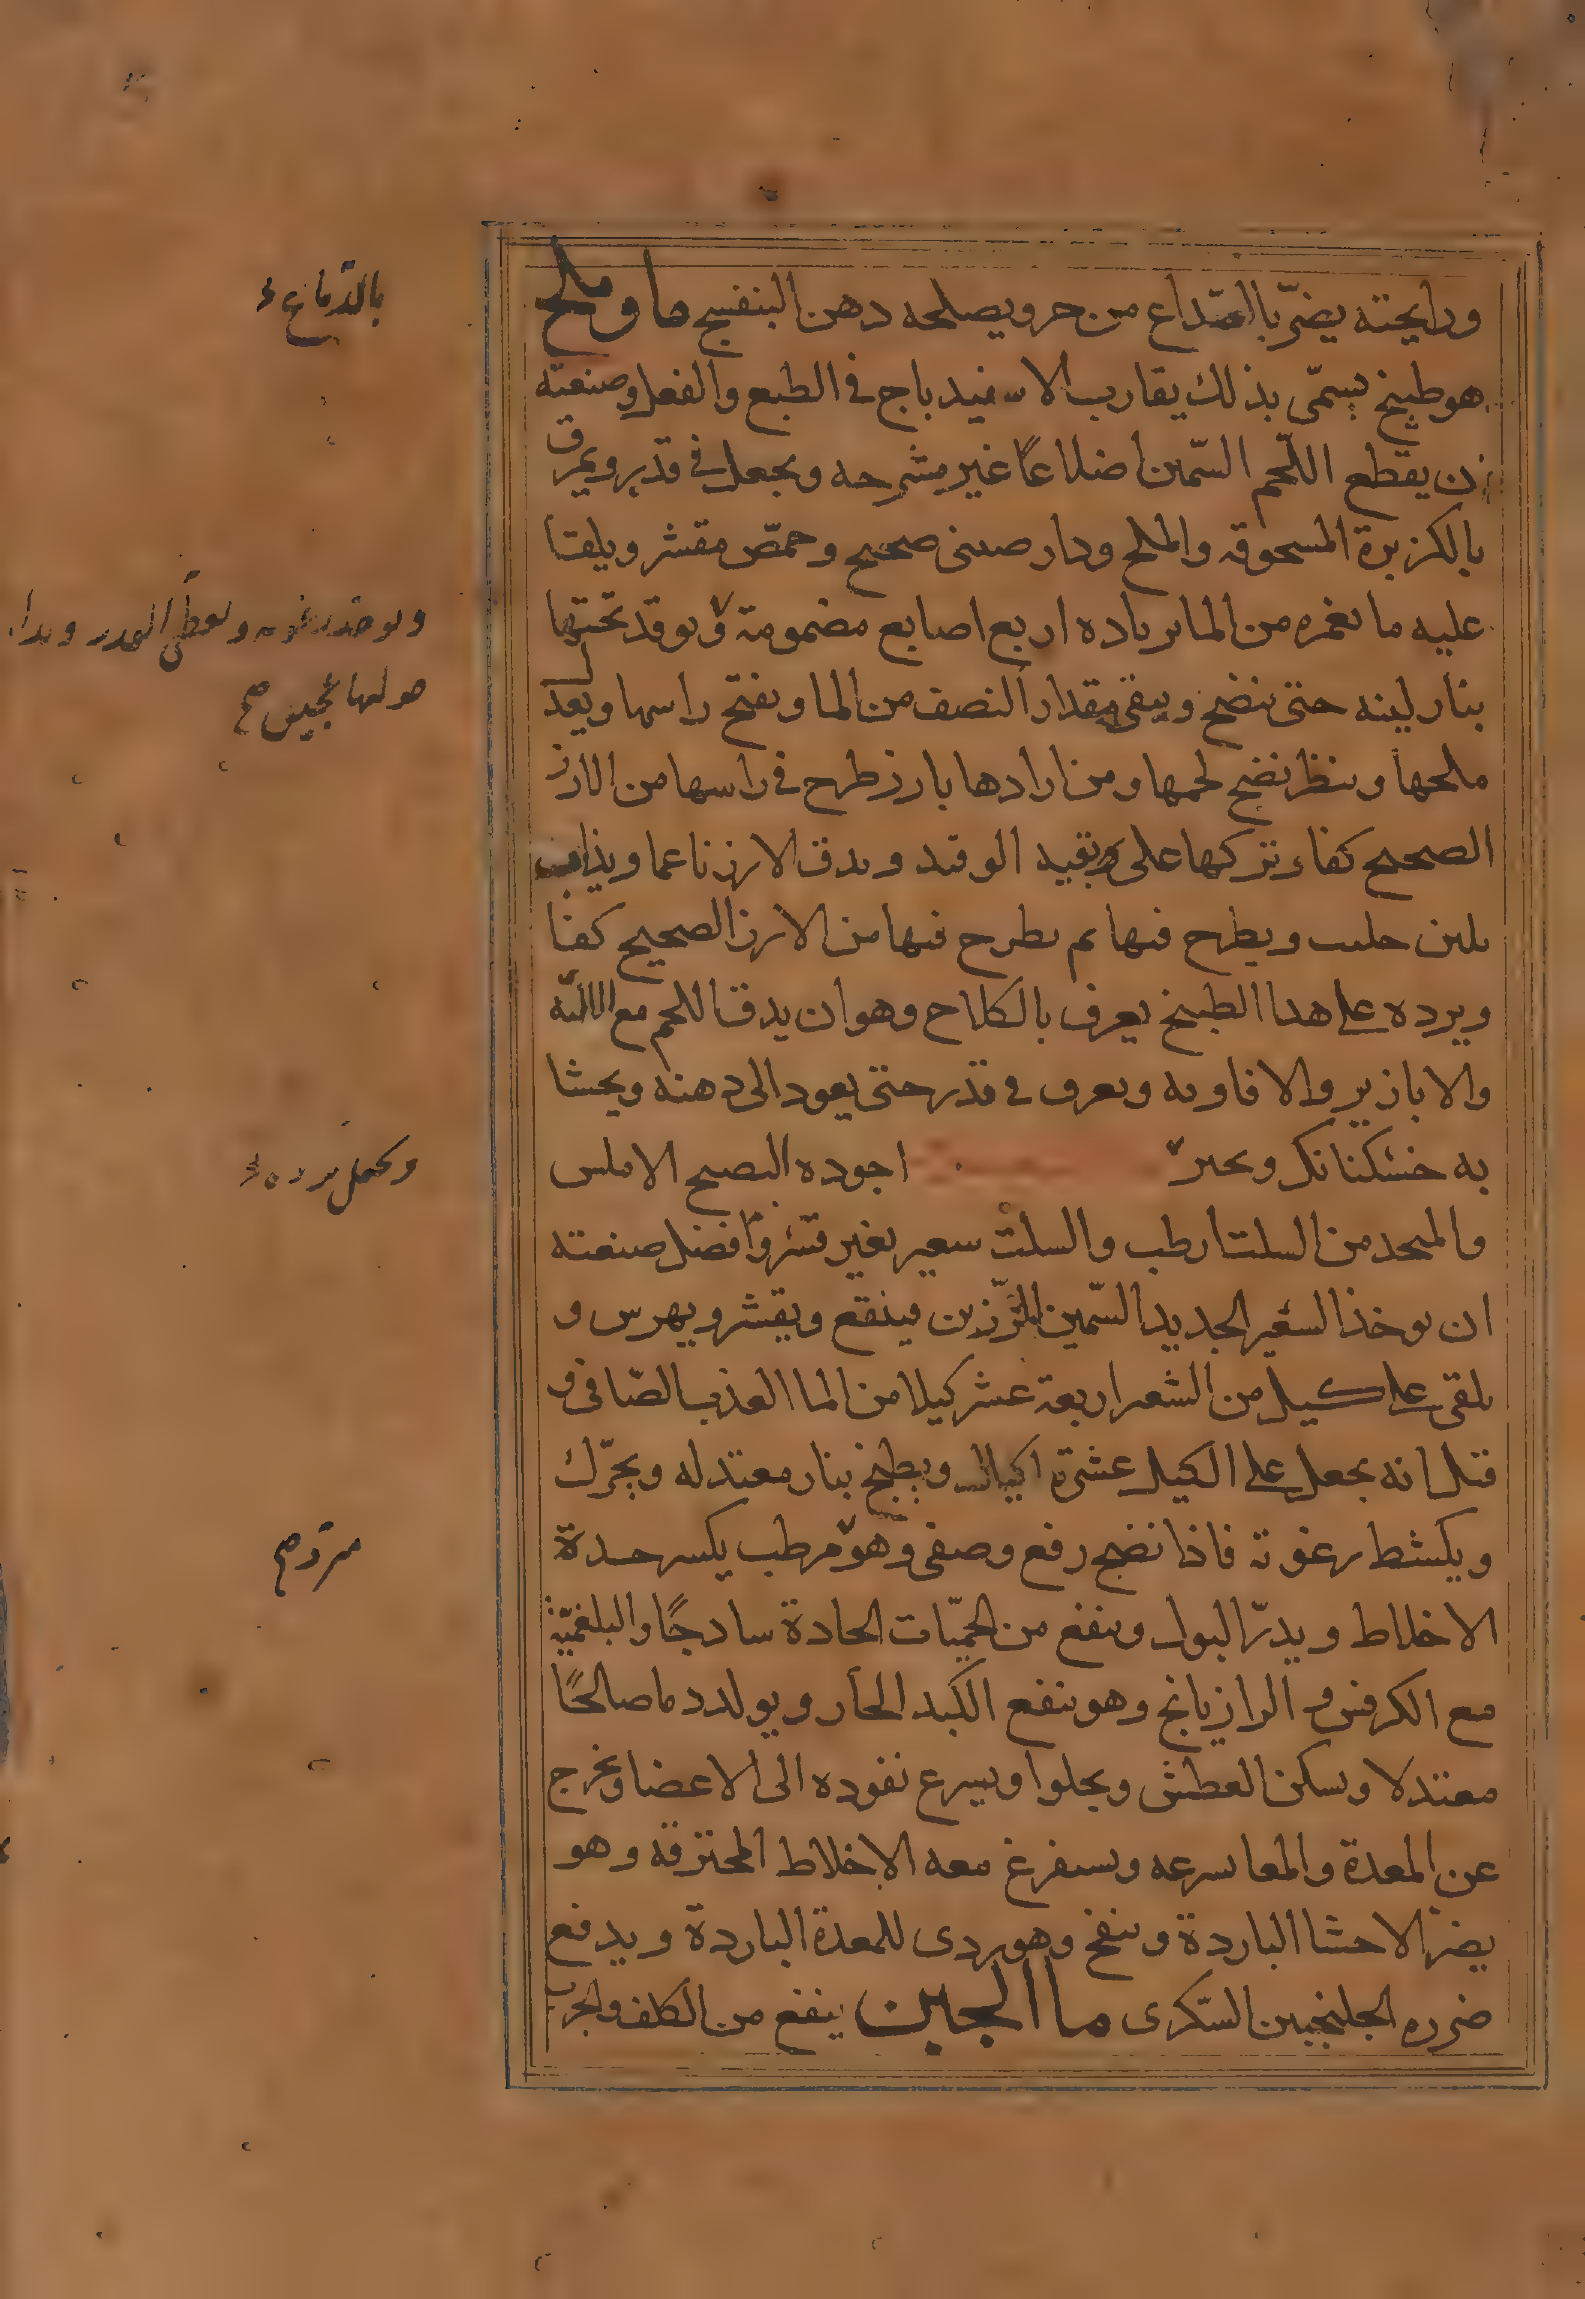 ورايحته يضرّ بالصّداع من حر ويصلحه دهن البنفسج ما وملح
هو طبيخ يسمّى بذلك يقارب الاسفيدباج في الطبع والفعل وصنعته
ان يقطع اللّحم السّمين اضلاعًا غير مشرحه ويجعل في قدر ويمرق
بالكزبرة المسحوقه والملح ودارصينى صحيح وحمّص مقشر ويلقا
عليه ما يغمره من الما بزياده اربع اصابع مضمومة ويوقد تحتها
بنار لينه حتى ينضج ويبقى مقدار النصف من الما ويفتح راسها ويعد
ملحها وينظر نضج لحمها ومن ارادها بارز طرح في راسها من الارز
الصحيح كفا ويتركها على بقيد الوقد ويدق الارز ناعما ويذاب
بلبن حليب ويطرح فيها ثم يطرح فيها من الارز الصحيح كفا
ويرده على هدا الطبيخ يعرف بالكلاح وهو ان يدق اللحم مع الاليه
والابازير والافاويه ويعرق في قدر حتى يعود الى دهنه ويحشا
به خشكنانك ويخبز اجوده النضيج الاملس
والمتحد من السلت ارطب والسلت سعير بغير قشر وافضل صنعته
ان يوخذ الشعير الجديد السّمين الرّزين فينقع ويقشر ويهرس و
يلقى على كيل من الشعير اربعة عشر كيلا من الما العذب الصّافى و
قيل انه يجعل على الكيل عشرة اكيال ويطبخ بنار معتدله ويحرّك
ويكشط رغوته فاذا نضج رفع وصفى وهو مرطب يكسر حدة
الاخلاط ويدرّ البول وينفع من الحميّات الحادة سادجًا والبلغميّة
مع الكرفس و الرازيانج وهو ينفع الكبد الحار ويولد دما صالحًا
معتدلا ويسكن العطش ويجلوا ويسرع نفوده الى الاعضا ويخرج
عن المعدة والمعا بسرعه ويستفرغ معه الاخلاط المحترقه وهو
يضرّ الاحشا الباردة وينفخ وهو ردى للمعدة الباردة ويدفع
ضرره الجلنجبين السّكرى ما الجبن ينفع من الكلف والجرب
بالدّماغ
ويوخذ رغوته ويغطى القدر
حولها بعجين صح
مبرّد صح